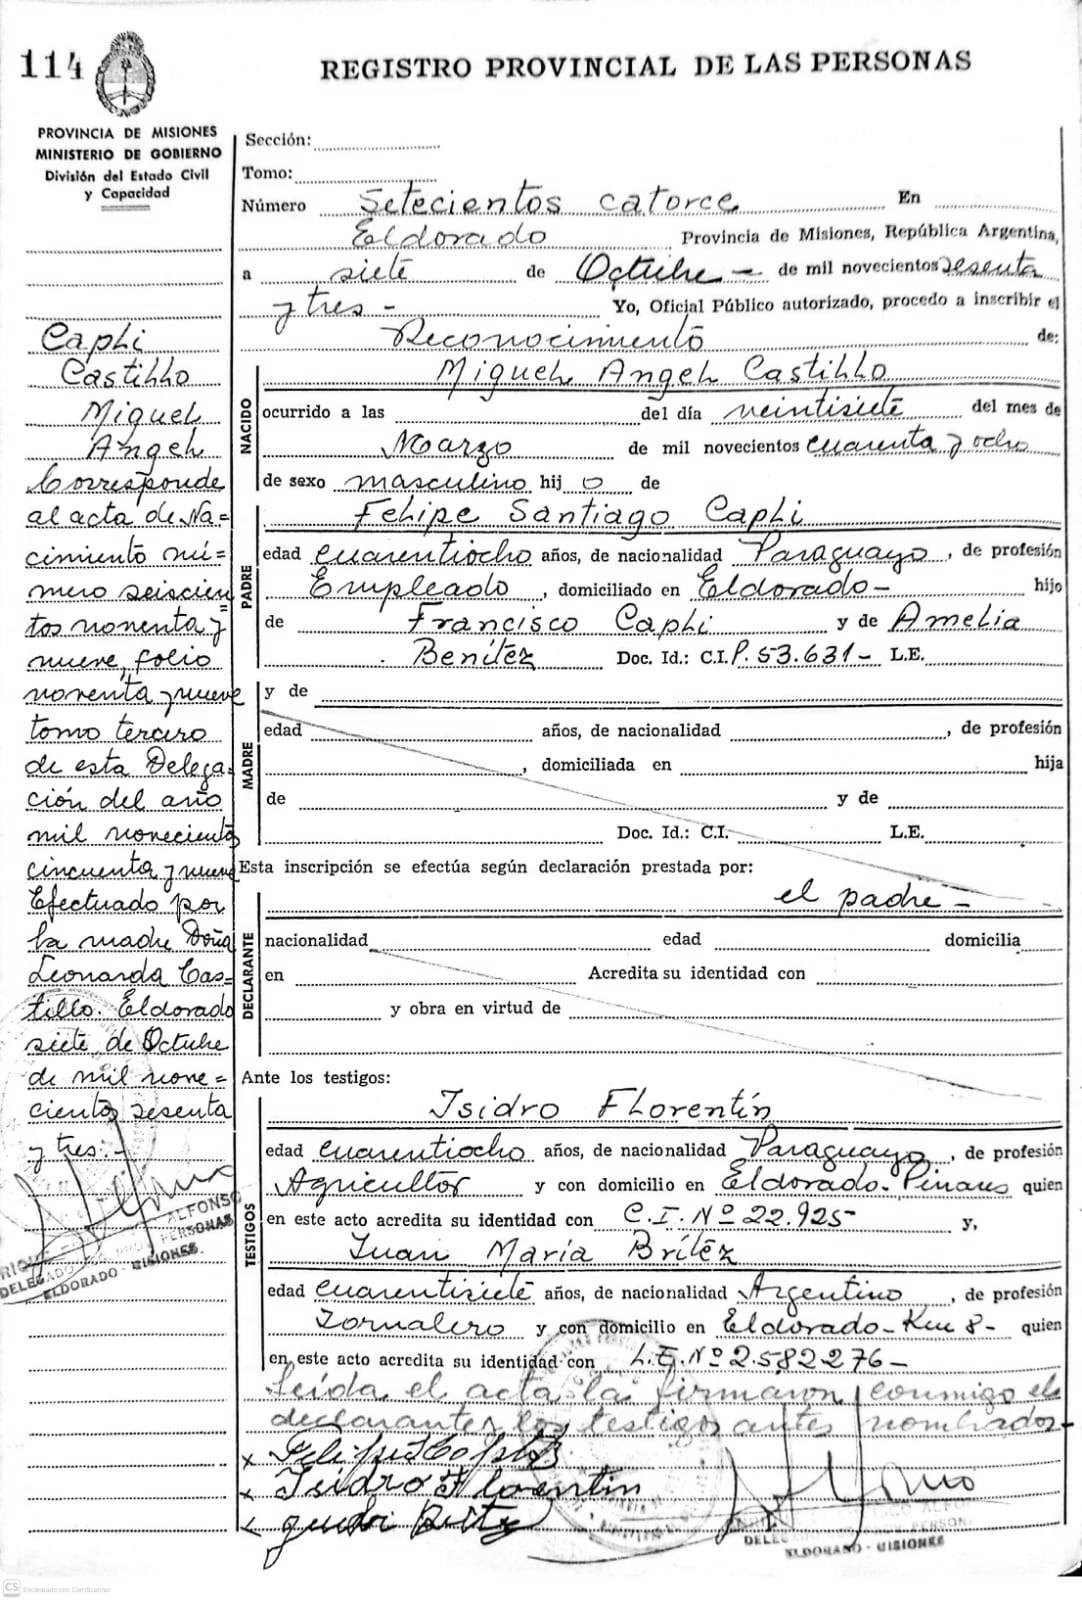 114
REGISTRO PROVINCIAL DE LAS PERSONAS
PROVINCIA DE MISIONES
MINISTERIO DE GOBIERNO
División del Estado Civil
y Capacidad
Caphi
Castihho
Miguel
Angeh
Corresponde
al acta de Na=
cimiento nú=
mero seiscien
tos noventa y
nueve, folio
noventa y nueve
tomo tercero
de esta Delega
ción del año
mil novecientos
cincuenta y nueve
Efectuado por
la madre Doña
Leonarda Cas=
tillo. Eldorado
siete de Octubre
de mil nove=
cientos sesenta
y tres.-
ALFONSO
DELEGADO PERSONAS
ELDORADO - MISIONES
Sección:
Tomo:
Número Setecientos catorce En
Eldorado Provincia de Misiones, República Argentina,
a siete de Octubre - de mil novecientos sesenta
y tres - Yo, Oficial Público autorizado, procedo a inscribir el
Reconocimiento de:
NACIDO
Migueh Angeh Castihho
ocurrido a las del día veintisiete del mes de
Marzo de mil novecientos cuarenta y ocho
de sexo masculino hij o de
PADRE
Fehipe Santiago Caphi
edad cuarentiocho años, de nacionalidad Paraguayo, de profesión
Empleado, domiciliado en Eldorado- hijo
de Francisco Caphi y de Amelia
Benítez Doc. Id.: C.I. P. 53.631- L.E.
MADRE
y de
edad años, de nacionalidad , de profesión
, domiciliada en hija
de y de
Doc. Id.: C.I. L.E.
Esta inscripción se efectúa según declaración prestada por:
DECLARANTE
el padre -
nacionalidad edad domicilia
en Acredita su identidad con
y obra en virtud de
Ante los testigos:
TESTIGOS
Isidro Fhorentín
edad cuarentiocho años, de nacionalidad Paraguayo, de profesión
Agricultor y con domicilio en Eldorado. Pinares quien
en este acto acredita su identidad con C.I. Nº 22.925- y,
Juan María Brítez
edad cuarentisiete años, de nacionalidad Argentino, de profesión
Jornalero y con domicilio en Eldorado-Km 8- quien
en este acto acredita su identidad con L.E. Nº 2.582.276-
Leída el acta la firmaron conmigo el
declarante y los testigos antes nombrados-
x
x Isidro Florentin
x
DELEGADO PERSON
ELDORADO - MISIONES
CS Escaneado con CamScanner